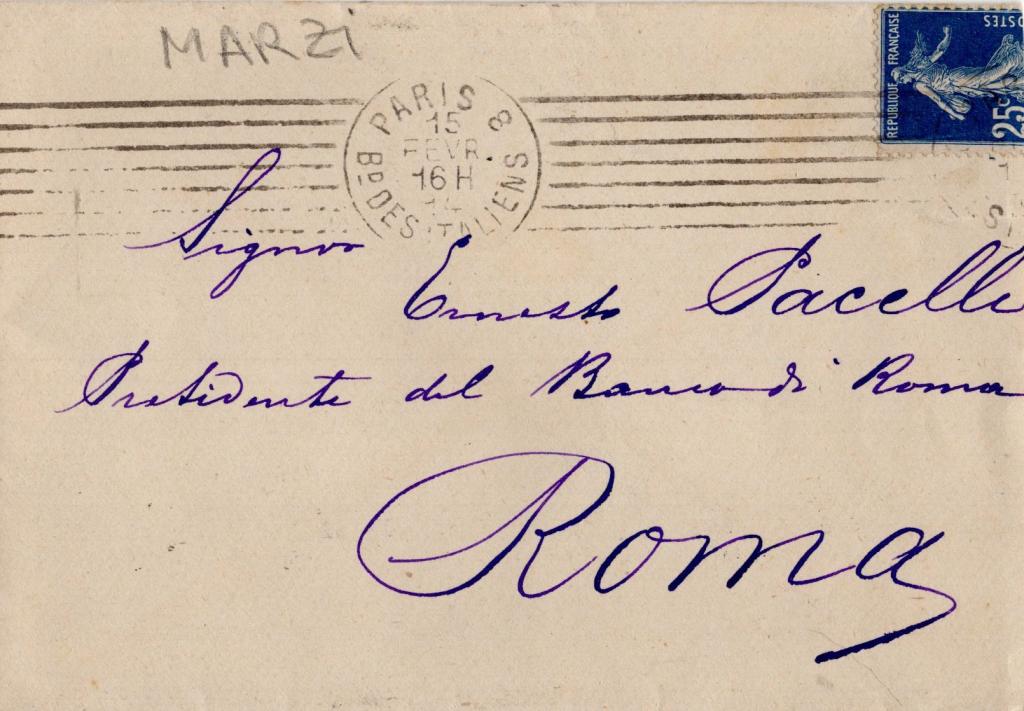 MARZI
PARIS 8
15
FEVR.
16 H
14
BD DES ITALIENS
REPUBLIQUE FRANÇAISE
POSTES
25c
Signor
Ernesto Pacelli
Presidente del Banco di Roma
Roma